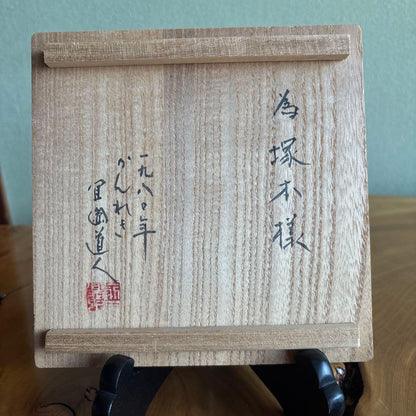 為 塚本様
一九八〇年
かんれき
道人